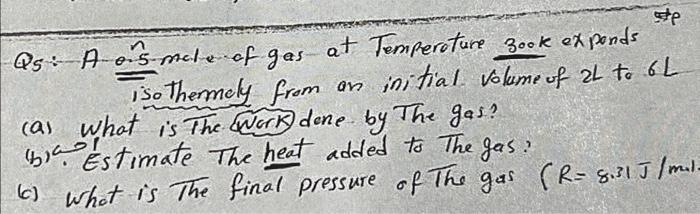 Q5: A 0.5 mole of gas at Temperature 300k exponds
isothermely from an initial volume of 2L to 6L
(a) What is The Work done by The gas?
(b) Estimate The heat added to The gas?
(c) What is The final pressure of The gas (R= 8.31 J/mol.